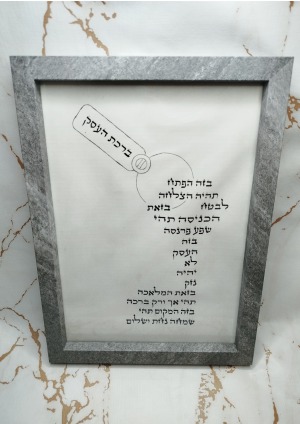 ברכת העסק
בזה הפתח
תהיה הצלחה
לבטח בזאת
הכניסה תהי
שפע פרנסה
בזה
העסק
לא
יהיה
נזק
בזאת המלאכה
תהי אך ורק ברכה
בזה המקום תהי
שמחה נחת ושלום